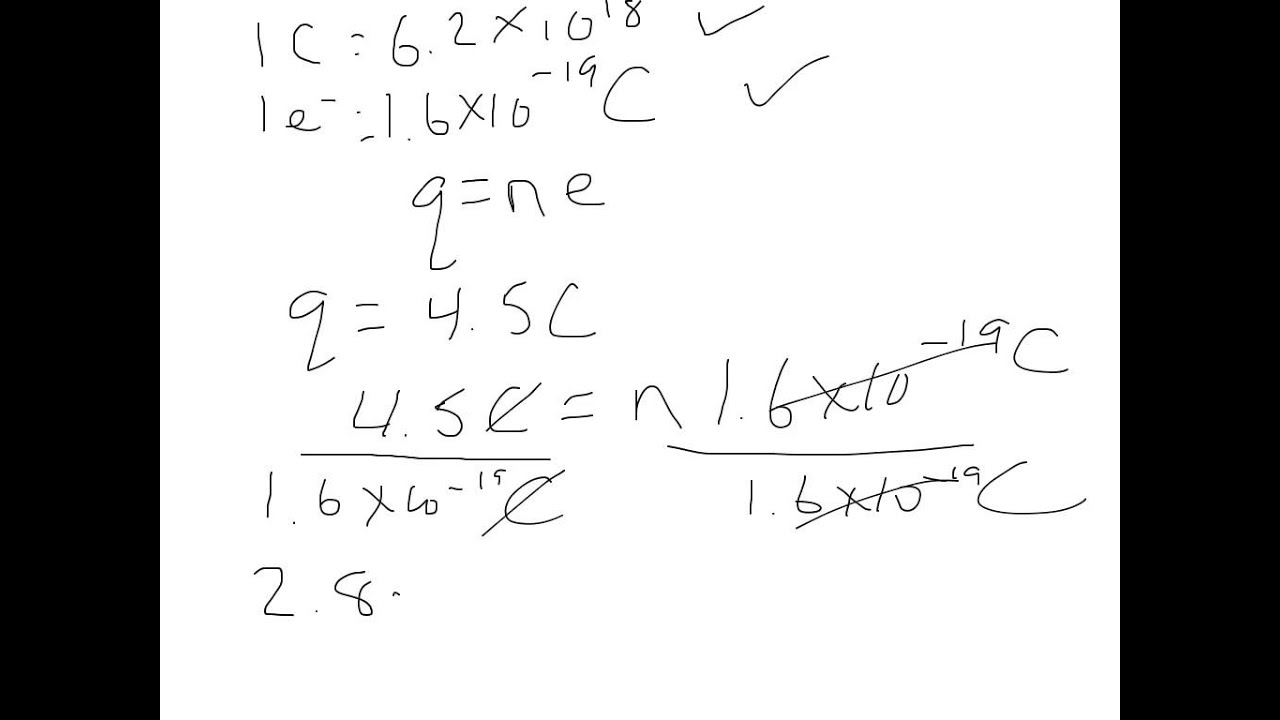 1 C = 6.2 × 10¹⁸ ✓
1 e⁻ = 1.6×10⁻¹⁹ C ✓
q = n e
q = 4.5 C
4.5 C = n 1.6×10⁻¹⁹ C
1.6 × 10⁻¹⁹ C 1.6×10⁻¹⁹ C
2.8